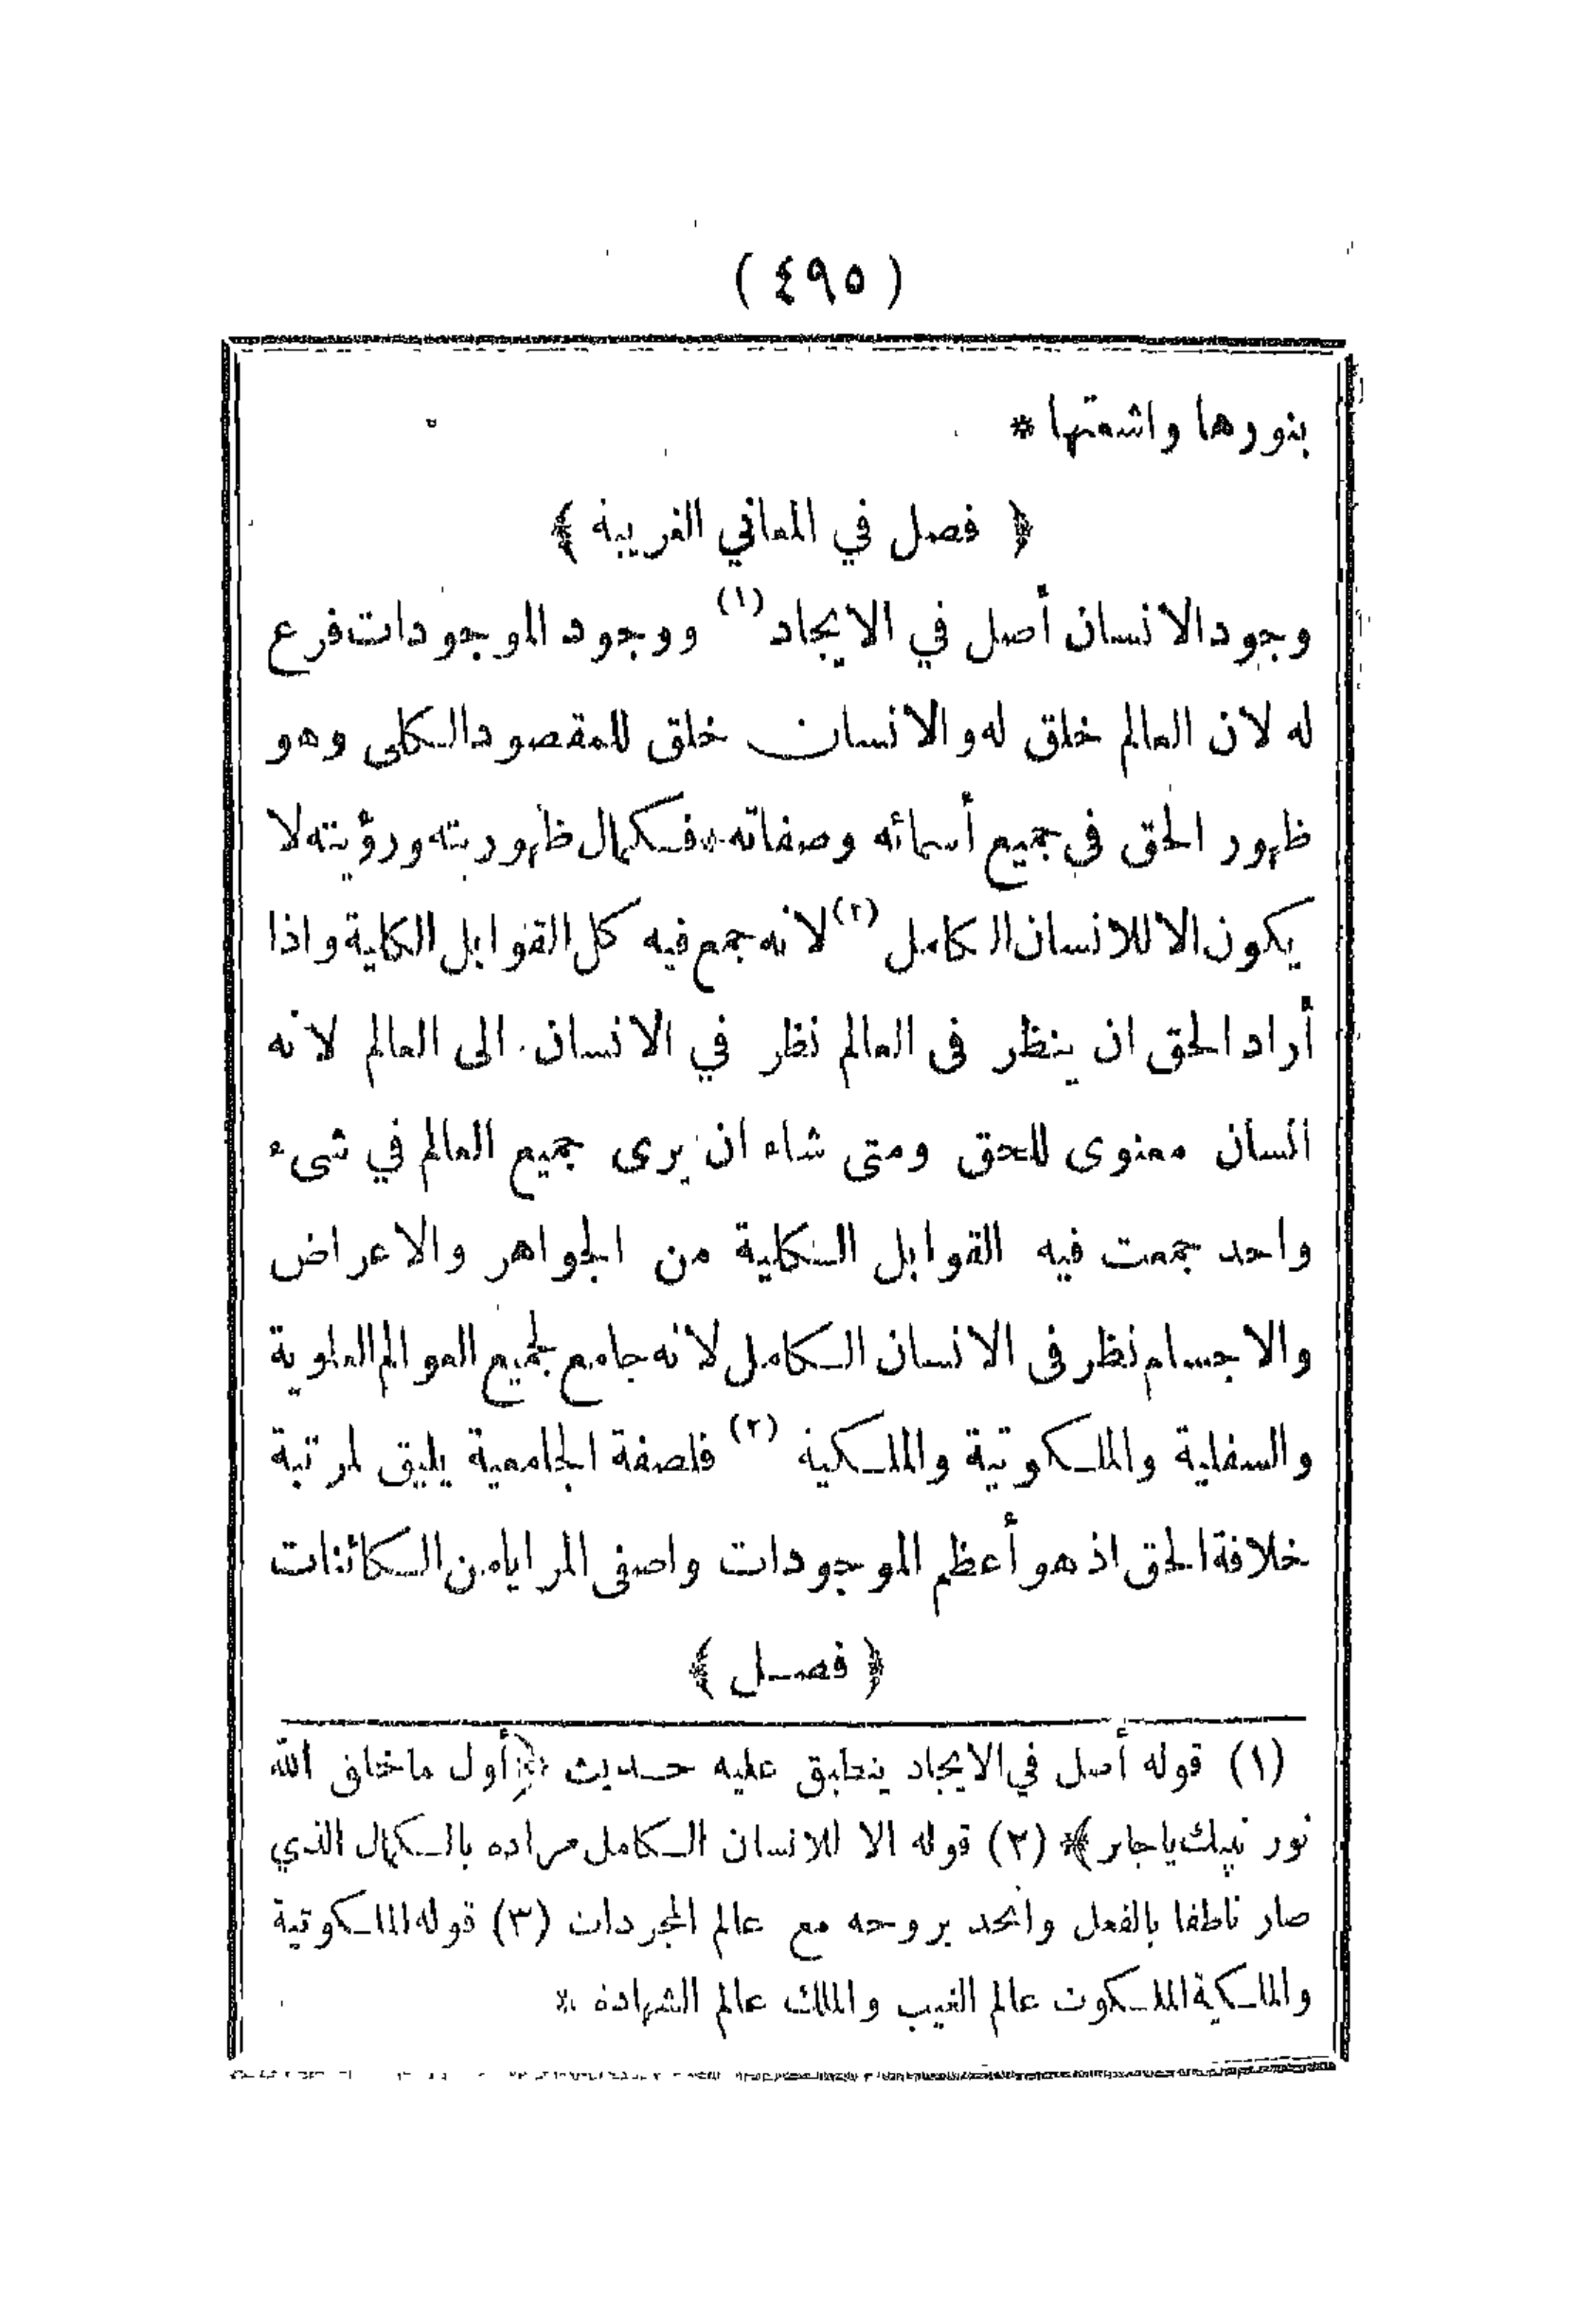 ( ٤٩٥ )
بنورها واشعتها *
﴿ فصل في المعاني الغريبة ﴾
وجود الانسان أصل في الايجاد (١) ووجود الموجودات فرع
له لان العالم خلق له والانسان خلق للمقصود الكلى وهو
ظهور الحق في جميع أسمائه وصفاته * فكمال ظهوريته ورؤيته لا
يكون الا للانسان الكامل (٢) لانه جمع فيه كل القوابل الكلية واذا
أراد الحق ان ينظر فى العالم نظر في الانسان الى العالم لانه
انسان معنوى للحق ومتى شاء ان يرى جميع العالم في شىء
واحد جمعت فيه القوابل الكلية من الجواهر والاعراض
والاجسام نظر فى الانسان الكامل لانه جامع لجميع العوالم العلوية
والسفلية والملكوتية والملكية (٣) فلصفة الجامعية يليق لمرتبة
خلافة الحق اذ هو أعظم الموجودات واصفى المرايا من الكائنات
﴿ فصل ﴾
(١) قوله أصل في الايجاد ينطبق عليه حديث ﴿ أول ما خلق الله
نور نبيك يا جابر ﴾* (٢) قوله الا للانسان الكامل مراده بالكمال الذي
صار ناطقا بالفعل واتحد بروحه مع عالم المجردات (٣) قوله الملكوتية
والملكية الملكوت عالم الغيب والملك عالم الشهادة *